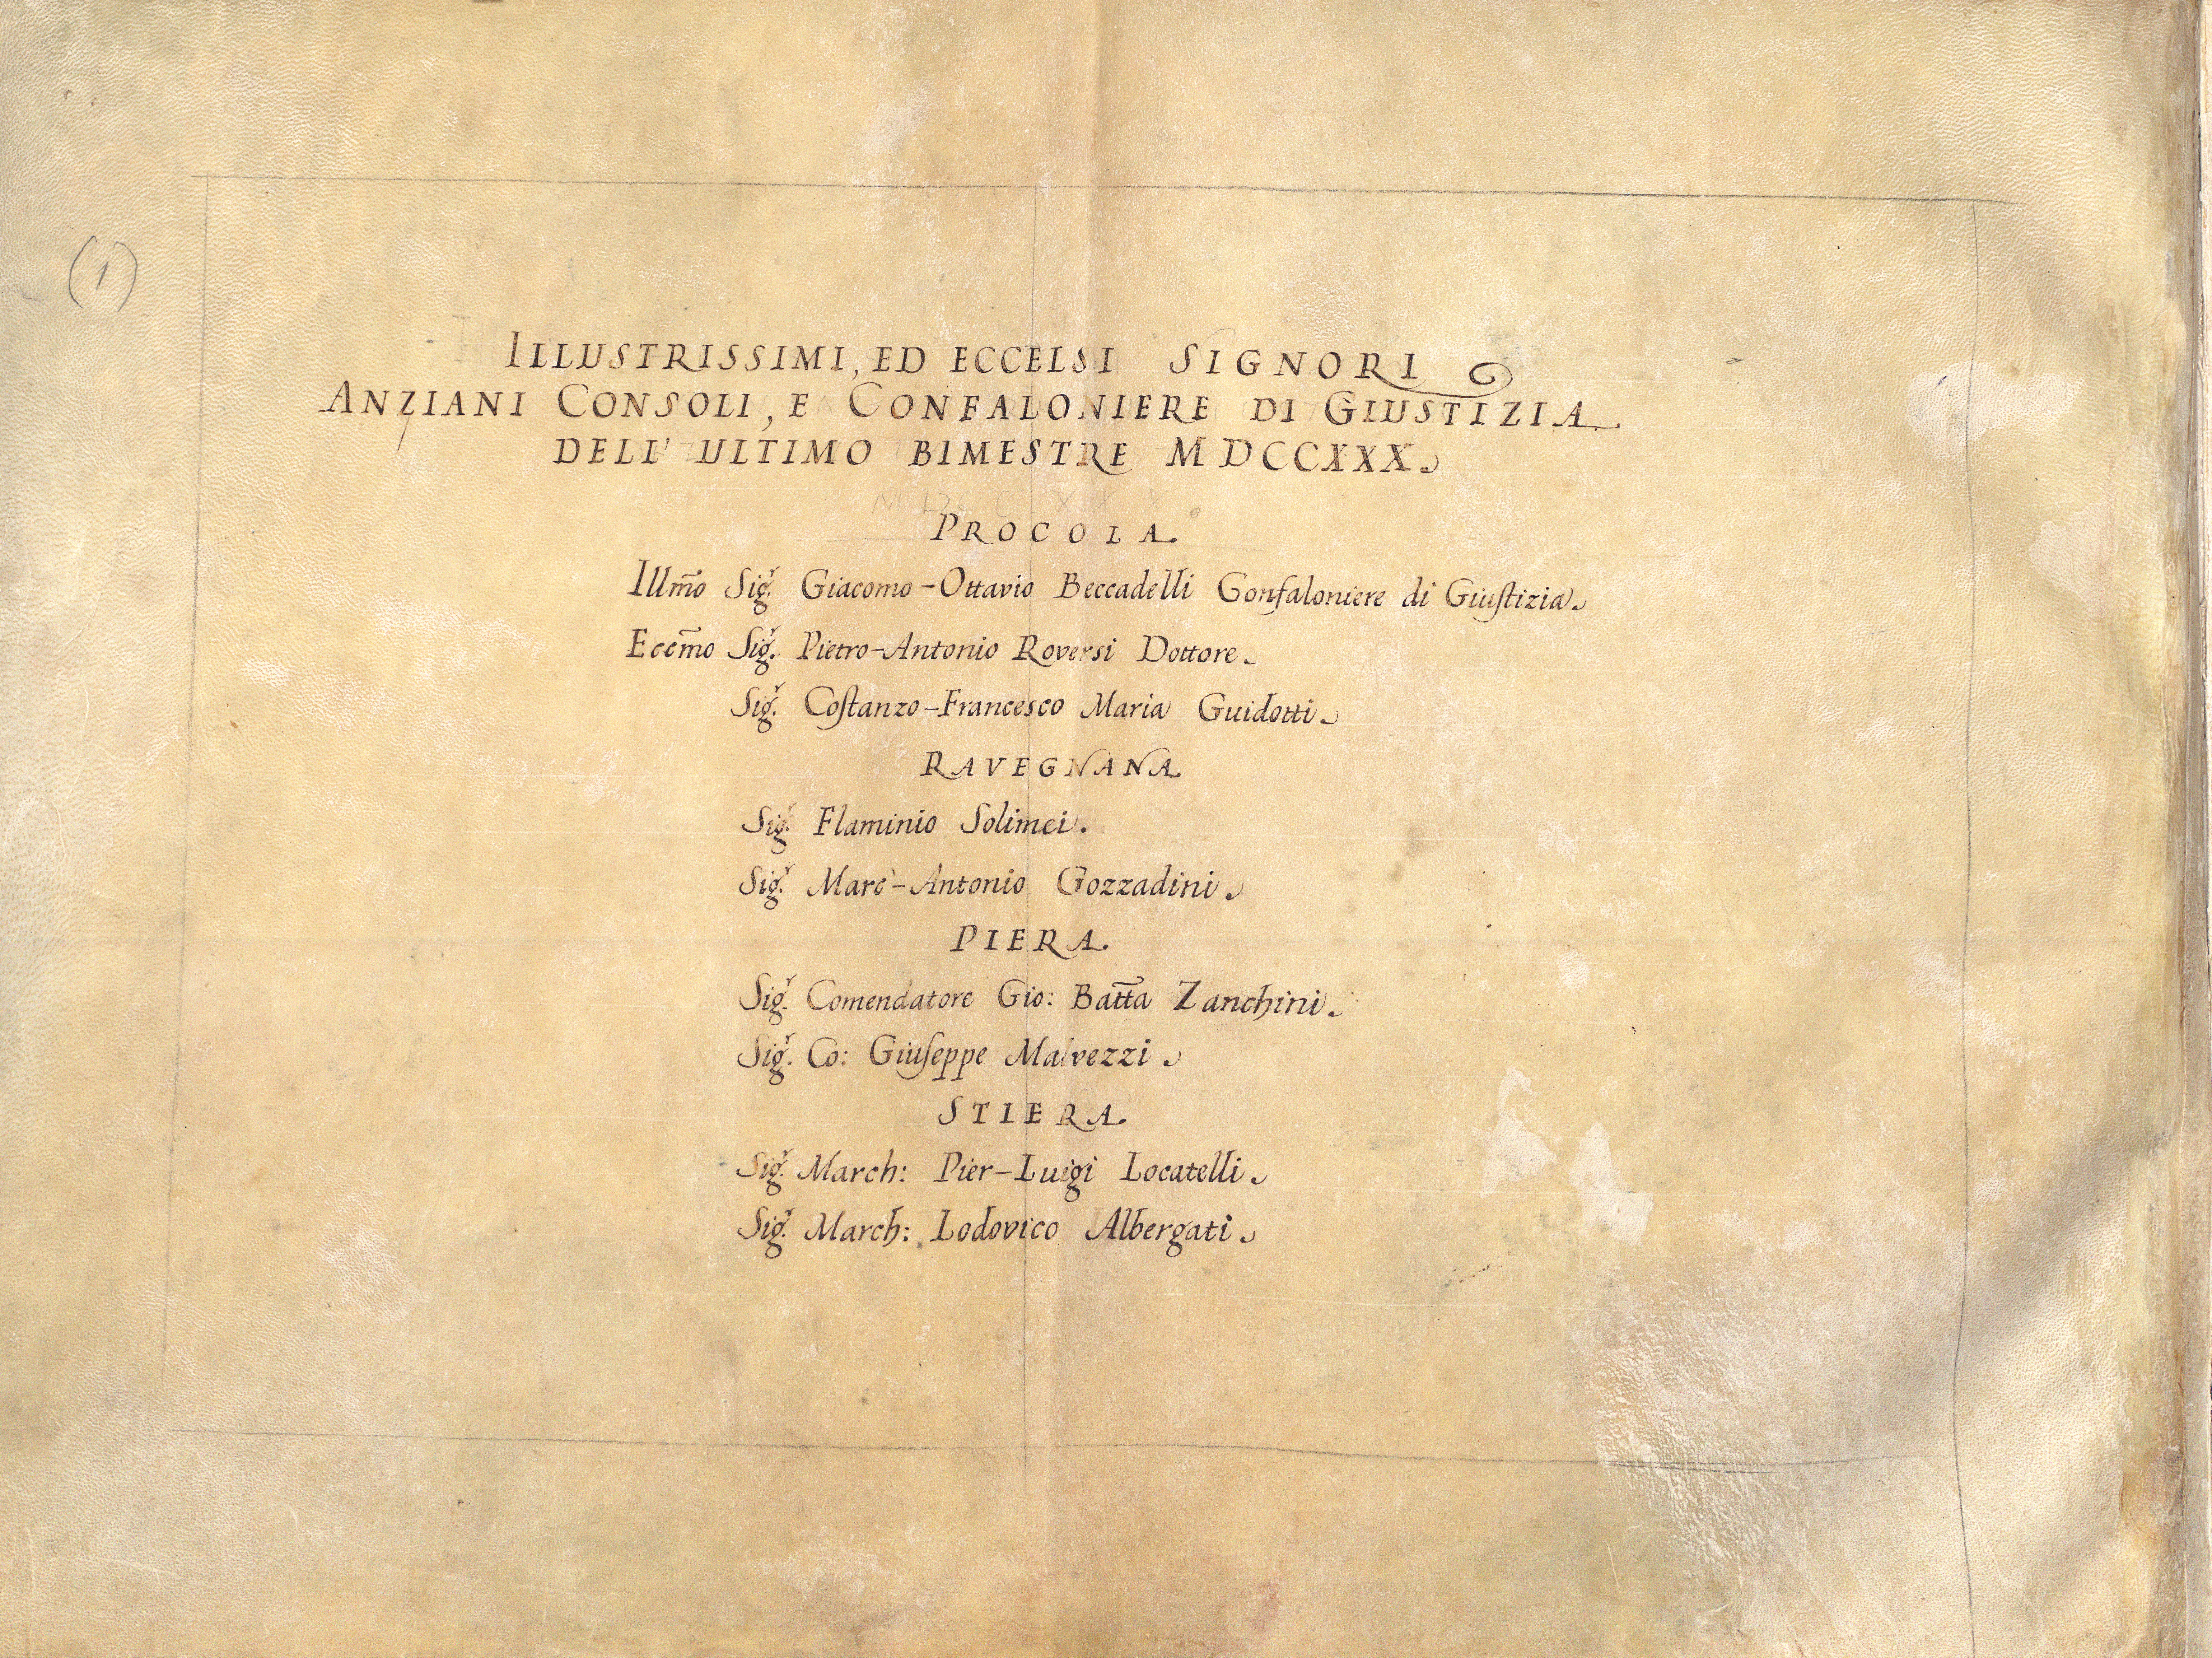 (1)
ILLUSTRISSIMI, ED ECCELSI SIGNORI
ANZIANI CONSOLI, E CONFALONIERE DI GIUSTIZIA
DELL' ULTIMO BIMESTRE MDCCXXX.
PROCOLA.
Illm̃o Sig.r Giacomo-Ottavio Beccadelli Gonfaloniere di Giuſtizia.
Eccm̃o Sig.r Pietro-Antonio Roversi Dottore.
Sig.r Coſtanzo-Francesco Maria Guidotti.
RAVEGNANA.
Sig.r Flaminio Solimei.
Sig.r Marc'-Antonio Gozzadini.
PIERA.
Sig.r Comendatore Gio: Batt̃a Zanchini.
Sig.r Co: Giuſeppe Malvezzi.
STIERA.
Sig.r March: Pier-Luigi Locatelli.
Sig.r March: Lodovico Albergati.